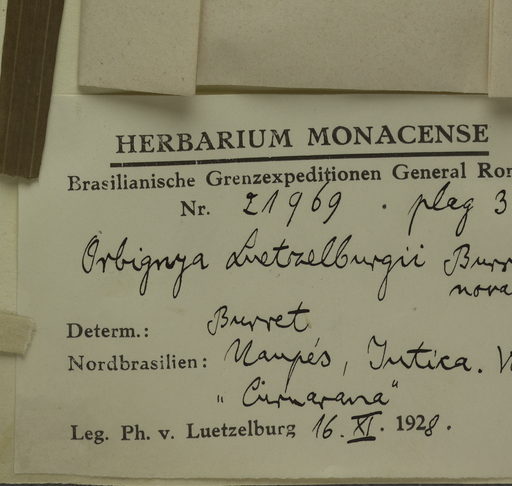 HERBARIUM MONACENSE
Brasilianische Grenzexpeditionen General Ron
Nr. 21969 . plag 3
Orbignya Luetzelburgii Burr
nova
Determ.: Burret
Nordbrasilien: Uaupés, Jutica. V
„ Curuarana"
Leg. Ph. v. Luetzelburg 16. XI. 1928.